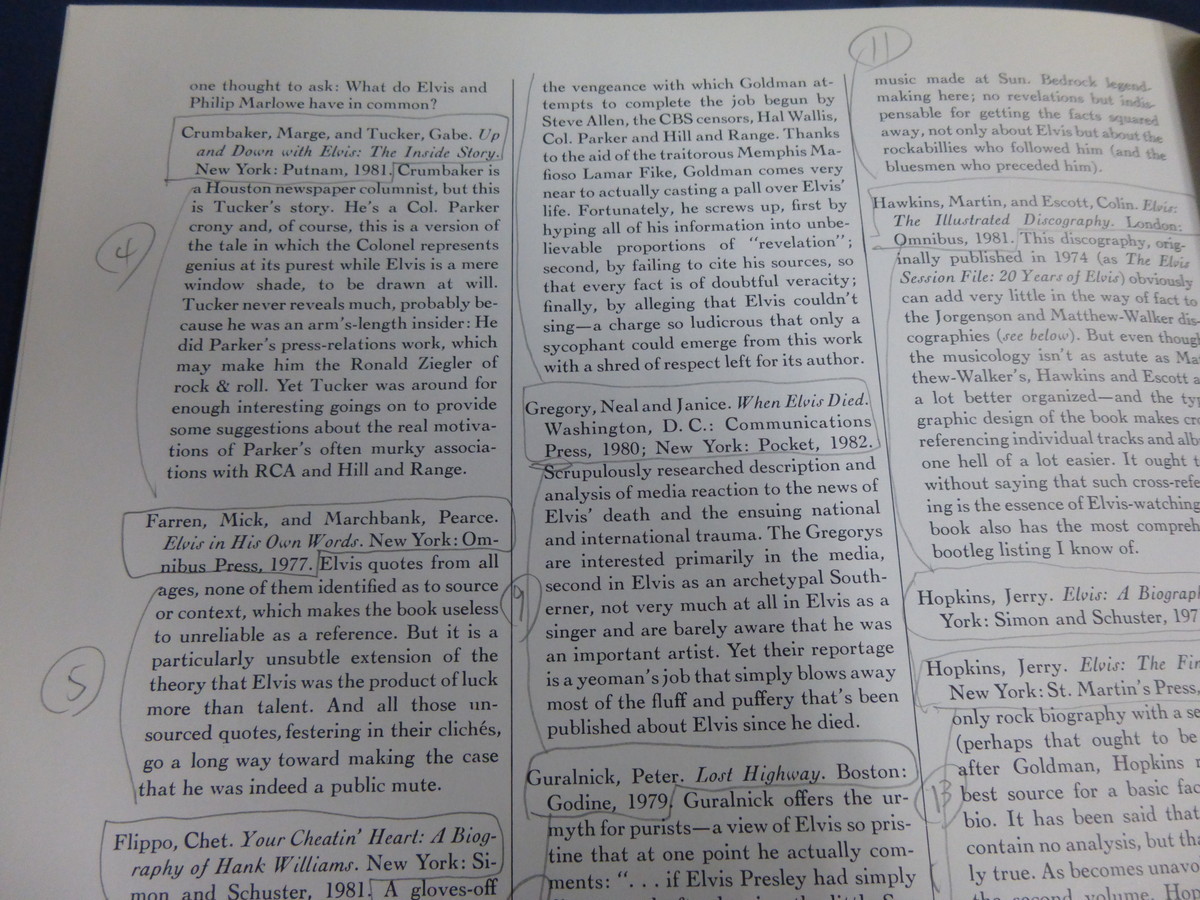 one thought to ask: What do Elvis and
Philip Marlowe have in common?
Crumbaker, Marge, and Tucker, Gabe. Up
and Down with Elvis: The Inside Story.
New York: Putnam, 1981. Crumbaker is
a Houston newspaper columnist, but this
is Tucker's story. He's a Col. Parker
crony and, of course, this is a version of
the tale in which the Colonel represents
genius at its purest while Elvis is a mere
window shade, to be drawn at will.
Tucker never reveals much, probably be-
cause he was an arm's-length insider: He
did Parker's press-relations work, which
may make him the Ronald Ziegler of
rock & roll. Yet Tucker was around for
enough interesting goings on to provide
some suggestions about the real motiva-
tions of Parker's often murky associa-
tions with RCA and Hill and Range.
4
Farren, Mick, and Marchbank, Pearce.
Elvis in His Own Words. New York: Om-
nibus Press, 1977. Elvis quotes from all
ages, none of them identified as to source
or context, which makes the book useless
to unreliable as a reference. But it is a
particularly unsubtle extension of the
theory that Elvis was the product of luck
more than talent. And all those un-
sourced quotes, festering in their clichés,
go a long way toward making the case
that he was indeed a public mute.
5
Flippo, Chet. Your Cheatin' Heart: A Biog-
raphy of Hank Williams. New York: Si-
mon and Schuster, 1981. A gloves-off
the vengeance with which Goldman at-
tempts to complete the job begun by
Steve Allen, the CBS censors, Hal Wallis,
Col. Parker and Hill and Range. Thanks
to the aid of the traitorous Memphis Ma-
fioso Lamar Fike, Goldman comes very
near to actually casting a pall over Elvis'
life. Fortunately, he screws up, first by
hyping all of his information into unbe-
lievable proportions of "revelation";
second, by failing to cite his sources, so
that every fact is of doubtful veracity;
finally, by alleging that Elvis couldn't
sing—a charge so ludicrous that only a
sycophant could emerge from this work
with a shred of respect left for its author.
Gregory, Neal and Janice. When Elvis Died.
Washington, D. C.: Communications
Press, 1980; New York: Pocket, 1982.
Scrupulously researched description and
analysis of media reaction to the news of
Elvis' death and the ensuing national
and international trauma. The Gregorys
are interested primarily in the media,
second in Elvis as an archetypal South-
erner, not very much at all in Elvis as a
singer and are barely aware that he was
an important artist. Yet their reportage
is a yeoman's job that simply blows away
most of the fluff and puffery that's been
published about Elvis since he died.
9
Guralnick, Peter. Lost Highway. Boston:
Godine, 1979. Guralnick offers the ur-
myth for purists—a view of Elvis so pris-
tine that at one point he actually com-
ments: ". . . if Elvis Presley had simply
11
music made at Sun. Bedrock legend-
making here; no revelations but indis-
pensable for getting the facts squared
away, not only about Elvis but about the
rockabillies who followed him (and the
bluesmen who preceded him).
Hawkins, Martin, and Escott, Colin. Elvis:
The Illustrated Discography. London:
Omnibus, 1981. This discography, orig-
inally published in 1974 (as The Elvis
Session File: 20 Years of Elvis) obviously
can add very little in the way of fact to
the Jorgenson and Matthew-Walker dis-
cographies (see below). But even though
the musicology isn't as astute as Mat
thew-Walker's, Hawkins and Escott a
a lot better organized—and the typ
graphic design of the book makes cro
referencing individual tracks and alb
one hell of a lot easier. It ought t
without saying that such cross-refe
ing is the essence of Elvis-watching
book also has the most compreh
bootleg listing I know of.
Hopkins, Jerry. Elvis: A Biograp
York: Simon and Schuster, 197
Hopkins, Jerry. Elvis: The Fin
New York: St. Martin's Press,
only rock biography with a se
(perhaps that ought to be
after Goldman, Hopkins r
best source for a basic fac
bio. It has been said that
contain no analysis, but tha
ly true. As becomes unavo
the second volume, Hop
13